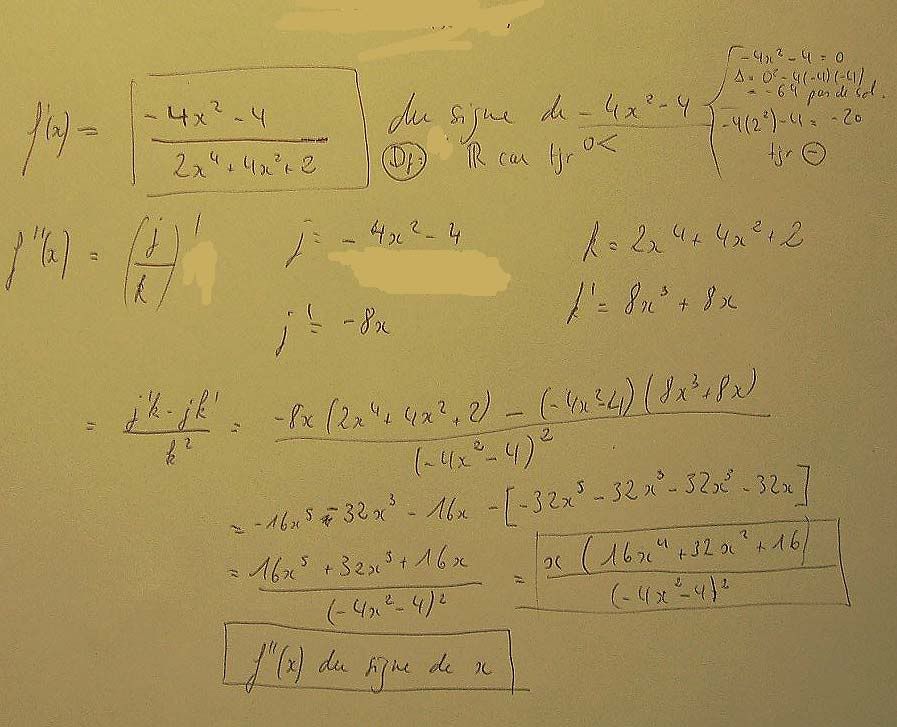 f'(x) = (-4x² - 4)/(2x⁴ + 4x² + 2) du signe de -4x² - 4
-4x² - 4 = 0
Δ = 0² - 4(-4)(-4)
= -64 pas de sol.
-4(2²) - 4 = -20
tjr ⊖
Df: ℝ car tjr 0<
f''(x) = (j/k)' j = -4x² - 4 k = 2x⁴ + 4x² + 2
j' = -8x k' = 8x³ + 8x
= (j'k - jk')/k² = (-8x(2x⁴ + 4x² + 2) - (-4x² - 4)(8x³ + 8x))/(-4x² - 4)²
= -16x⁵ - 32x³ - 16x - [-32x⁵ - 32x³ - 32x³ - 32x]
= (16x⁵ + 32x³ + 16x)/(-4x² - 4)² = x(16x⁴ + 32x² + 16)/(-4x² - 4)²
f''(x) du signe de x